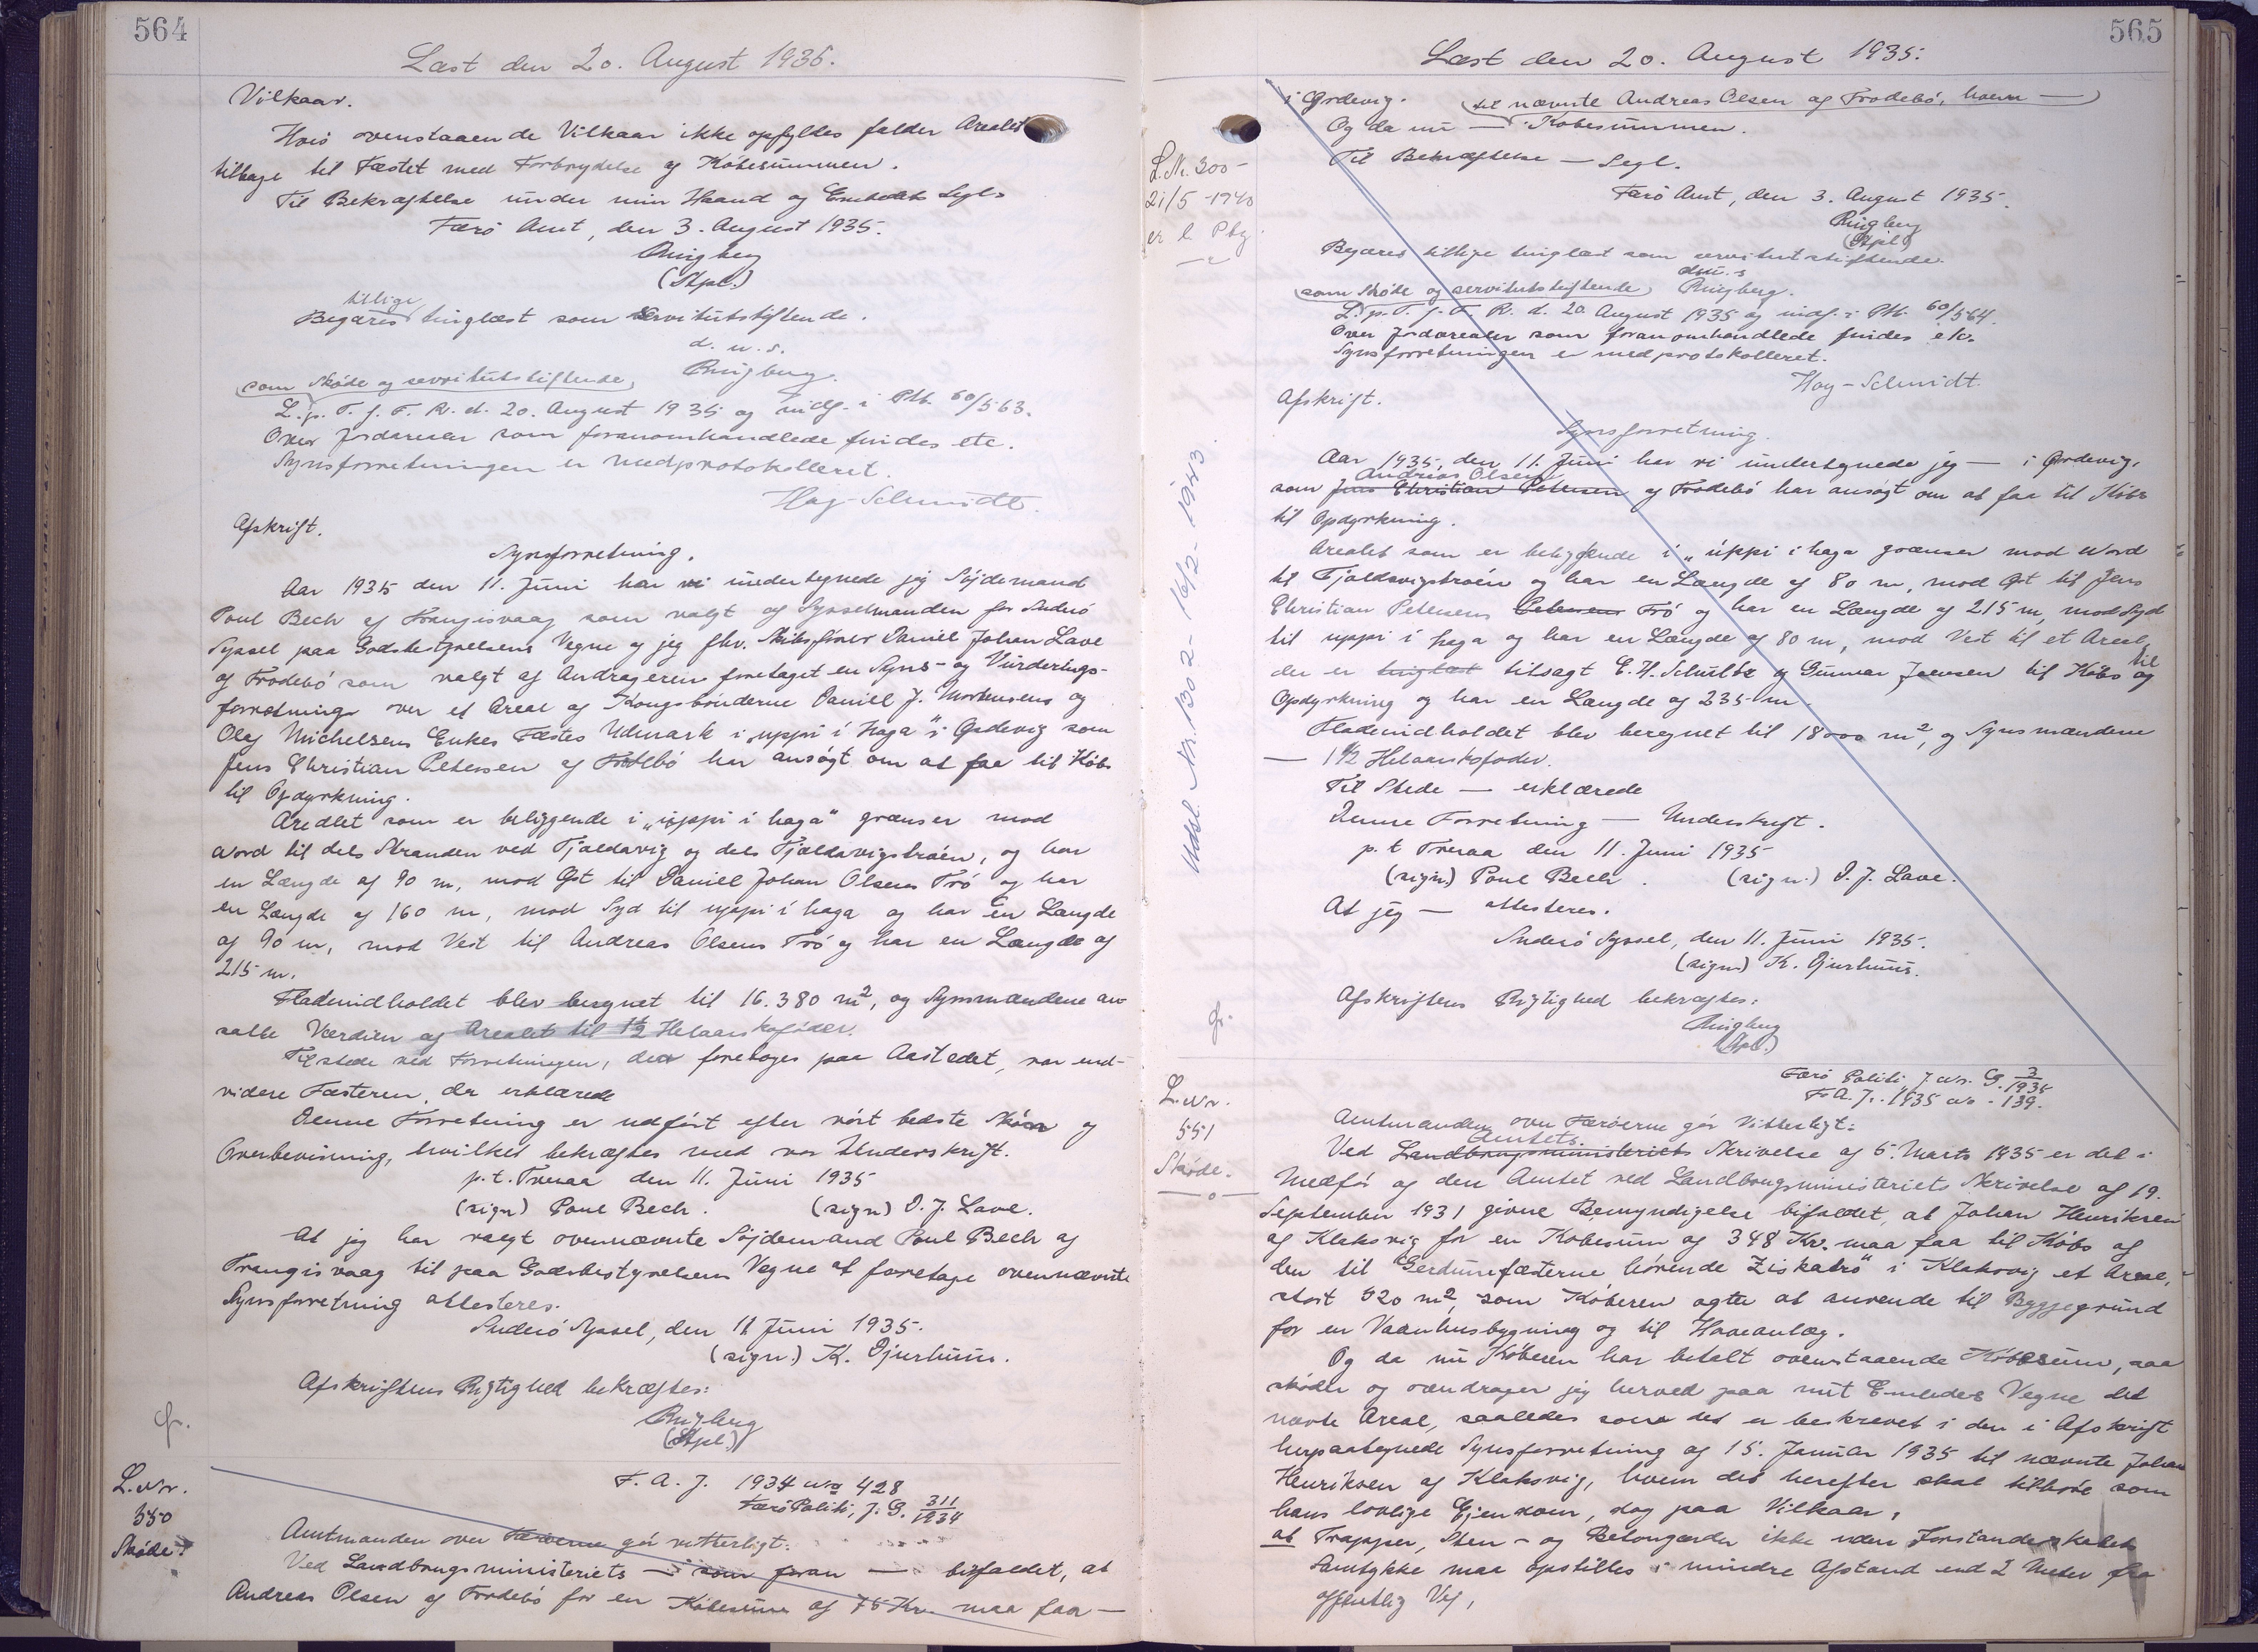 564
Læst den 20. August 1935.
Vilkaar.
Hvis ovenstaaende Vilkaar ikke opfyldes falder Arealet
tilbage til Fæstet med Forbrydelse af Købesummen.
Til Bekræftelse under min Haand og Embedets Segl.
Færø Amt, den 3. August 1935.
Ringberg
(Stpl.)
tillige
Begæres tinglæst som servitutstiftende.
d. u. s.
Ringberg.
som Skøde og servitutstiftende,
L. p. T. f. F. R. d. 20. August 1935 og indf. i Ptk. 60/563.
Over Jordarealer som foranomhandlede findes etc.
Synsforretningen er medprotokolleret.
Høy-Schmidt.
Afskrift.
Synsforretning.
Aar 1935 den 11. Juni har vi undertegnede jeg Søjdemand
Poul Bech af Trangisvaag som valgt af Sysselmanden for Suderø
Syssel paa Godsbestyrelsens Vegne og jeg fhv. Skibsfører Daniel Johan Lave
af Frodebø som valgt af Andrageren foretaget en Syns- og Vurderings-
forretning over et Areal af Kongsbønderne Daniel J. Mortensens og
Olaf Michelsens Enkes Fæstes Udmark i „uppi í Haga" i Ørdevig som
Jens Christian Petersen af Frodebø har ansøgt om at faa til Købs
til Opdyrkning.
Arealet som er beliggende i „uppi i haga" grænser mod
Nord til dels Stranden ved Tjaldavig og dels Tjaldavigstraðn, og har
en Længde af 90 m, mod Øst til Daniel Johan Olsens Trø og har
en Længde af 160 m, mod Syd til uppi i haga og har en Længde
af 90 m, mod Vest til Andreas Olsens Trø og har en Længde af
215 m.
Fladeindholdet blev beregnet til 16.380 m², og Synsmændene an-
satte Værdien af Arealet til 1½ Helaarskofoder.
Tilstede ved Forretningen, der foretoges paa Aastedet, var end-
videre Fæsteren, der erklærede
Denne Forretning er udført efter vort bedste Skøn og
Overbevisning, hvilket bekræftes med vor Underskrift.
p. t. Tveraa den 11. Juni 1935
(sign) Poul Bech. (sign) D. J. Lave.
At jeg har valgt ovennævnte Søjdemand Poul Bech af
Trangisvaag til paa Godsbestyrelsens Vegne at foretage ovennævnte
Synsforretning attesteres.
Suderø Syssel, den 11 Juni 1935.
(sign.) K. Djurhuus.
Afskriftens Rigtighed bekræftes:
Ringberg
(Stpl.)
L. Nr.
550
Skøde.
F. A. J. 1934 No 428
Færø Politi, J. G. 311/1934
Amtmanden over Færøerne gør vitterligt:
Ved Landbrugsministeriets — som foran — bifaldet, at
Andreas Olsen af Frodebø for en Købesum af 75 Kr. maa faa —
565
Læst den 20. August 1935.
i Ørdevig. til nævnte Andreas Olsen af Frodebø, hvem —
Og da nu — Købesummen.
Til Bekræftelse — Segl.
Færø Amt, den 3. August 1935.
Ringberg
(Stpl.)
L. Nr. 300-
21/5 - 1940
Begæres tillige tinglæst som servitutstiftende.
d. u. s
som Skøde og servitutstiftende, Ringberg.
L. p. T. f. F. R. d. 20 August 1935 og indf. i Ptk. 60/564.
Over Jordarealer som foranomhandlede findes etc.
Synsforretningen er medprotokolleret.
Høy-Schmidt.
Afskrift.
Synsforretning.
Aar 1935, den 11. Juni har vi undertegnede jeg — i Ørdevig,
Andreas Olsen
som Jens Christian Petersen af Frodebø har ansøgt om at faa til Købs
til Opdyrkning.
Arealet som er beliggende i „uppi i haga grænser mod Nord
til Tjaldavigstraðn og har en Længde af 80 m, mod Øst til Jens
Christian Petersens Petersens Trø og har en Længde af 215 m, mod Syd
til uppi i haga og har en Længde af 80 m, mod Vest til et Areal,
der er tinglæst tilsagt E. H. Schultz og Gunnar Joensen til Købs og til
Opdyrkning og har en Længde af 235 m.
Fladeindholdet blev beregnet til 18000 m², og Synsmændene
— 1½ Helaarskofoder.
Til Stede — erklærede
Denne Forretning — Underskrift.
p. t Tveraa den 11. Juni 1935
(sign) Poul Bech. (sign.) D. J. Lave.
At jeg — attesteres.
Suderø Syssel, den 11. Juni 1935.
(sign) K. Djurhuus.
Afskriftens Rigtighed bekræftes:
Ringberg
(Stpl.)
Udsl. Nr. 1302 - 16/2 - 1943.
L. Nr.
551
Skøde.
Færø Politi, J. Nr. G. 3/1935
F. A. J. 1935 No - 139.
Amtmanden over Færøerne gør Vitterligt:
Amtets
Ved Landbrugsministeriets Skrivelse af 5. Marts 1935 er det i
Medfør af den Amtet ved Landbrugsministeriets Skrivelse af 19.
September 1931 givne Bemyndigelse bifaldet, at Johan Henriksen
af Klaksvig for en Købesum af 348 Kr. maa faa til Købs af
den til Gerdumfæsterne hørende „Ziskatrø" i Klaksvig et Areal,
stort 520 m², som Køberen agter at anvende til Byggegrund
for en Vaanhusbygning og til Haveanlæg.
Og da nu Køberen har betalt ovenstaaende Købesum, saa
skøder og overdrager jeg herved paa mit Embedes Vegne det
nævnte Areal, saaledes som det er beskrevet i den i Afskrift
herpaategnede Synsforretning af 15. Januar 1935 til nævnte Johan
Henriksen af Klaksvig, hvem det herefter skal tilhøre som
hans lovlige Ejendom, dog paa Vilkaar,
at Trapper, Sten- og Betongærder ikke uden Forstanderskabets
Samtykke maa opstilles i mindre Afstand end 2 Meter fra
offentlig Vej,